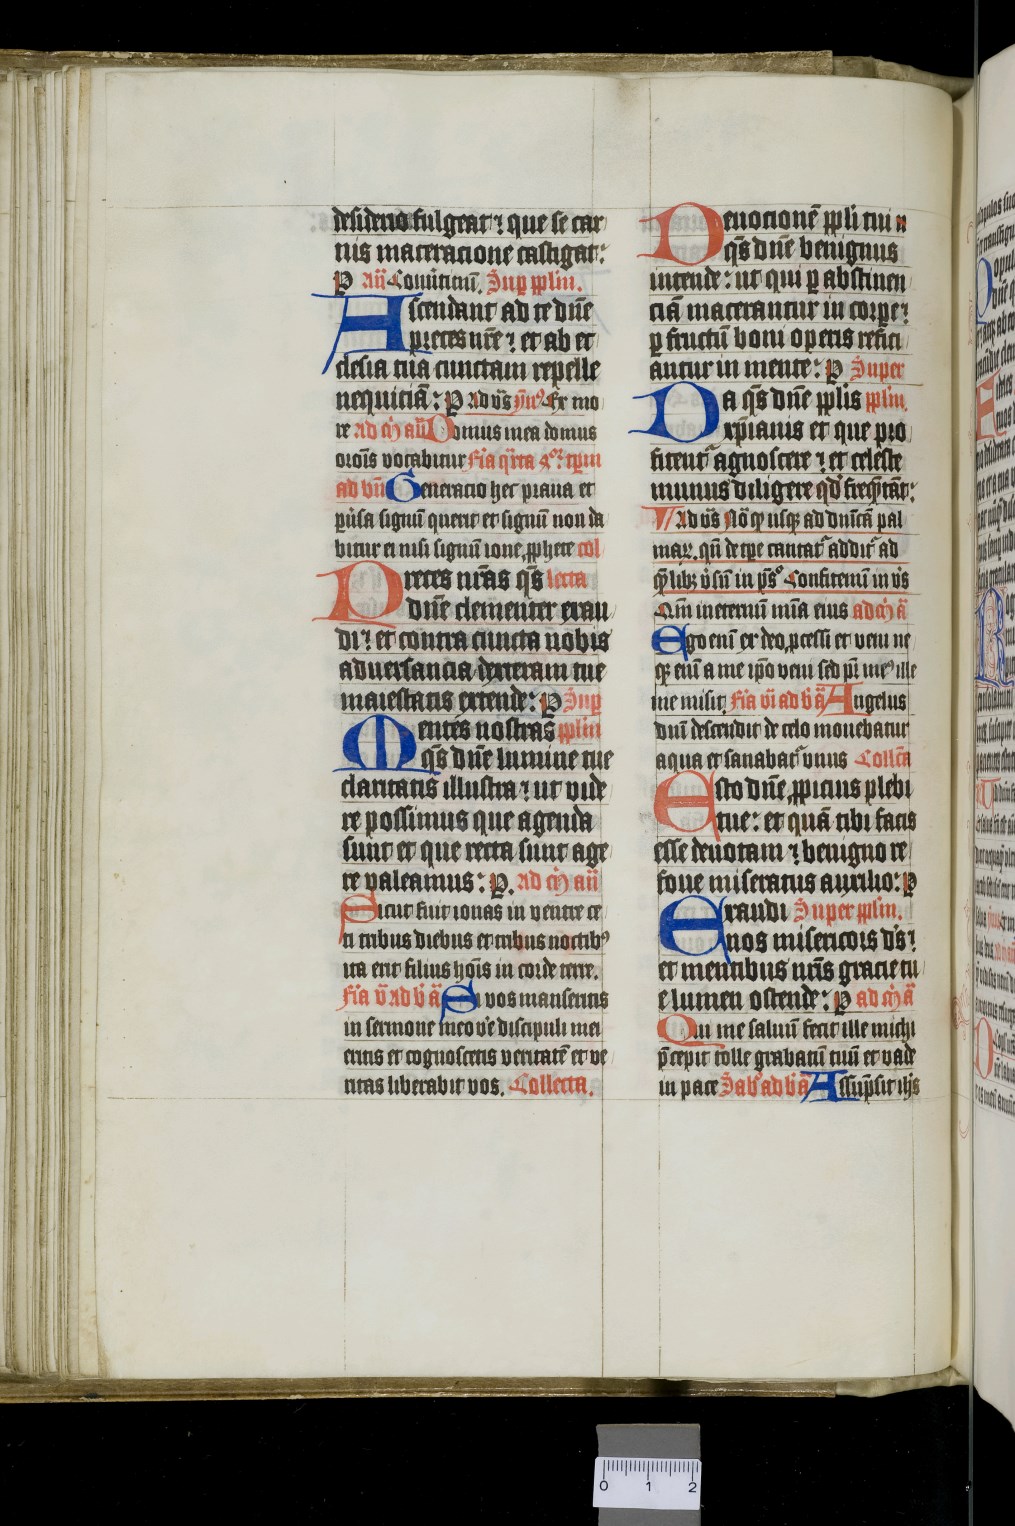 desiderio fulgeat ⁊ que se car
nis maceracione castigat:
P añ Cōuiciciū. Sup pplm.
Ascendant ad te dñe
preces nr̄e ⁊ et ab ec
clesia tua cunctam repelle
nequiciā: P ad vs̄ ymꝰ Ex mo
re ad m̄ añ Domus mea domus
oroīs vocabitur Fīa q̄rta 4ᵒʳ tp̄m
ad bn̄ Generacio hec praua et
puˢsa signū querit et signū non da
bitur ei nisi signū ione ꝓphete col
Preces nr̄as qs̄ lecta
dn̄e clementer exau
di ⁊ et contra cuncta nobis
aduersancia dexteram tue
maiestatis extende: P Sup
Mentes nostras pplm
qs̄ dn̄e lumine tue
claritatis illustra ⁊ ut vide
re possimus que agenda
sunt et que recta sunt age
re valeamus: P. ad m̄ añ
Sicut fuit ionas in ventre ce
ti tribus diebus et tribus noctibꝰ
ita erit filius hoīs in corde terre.
Fīa v̄ ad b̄ ā Si vos manseritis
in sermone meo ve discipuli mei
eritis et cognoscetis veritatē et ve
ritas liberabit vos. Collecta.
Deuocionē ppli tui
qs̄ dn̄e benignus
intende: ut qui p abstinen
ciā macerantur in corpe ⁊
p fructū boni operis refici
antur in mente: P Super
Da qs̄ dn̄e pplis pplm.
xpīanis et que pro
fitentʳ agnoscere ⁊ et celeste
munus diligere qd̄ freq̄ntāt:
Ad vs̄ Nō ꝙ usqꝫ ad dnīcā pal
maꝝ. qn̄ de tpe cantatʳ additʳ ad
q̄mlibꝫ v̄sū in ps̄ᵒ Confitemī in vs̄
Qm̄ in eternū mīa eius ad m̄ ā
Ego enī ex deo ꝓcessi et veni ne
qꝫ enī a me ipō veni sed pr̄ meꝰ ille
me misit. Fīa vī ad b̄ ā Angelus
dnī descendit de celo mouebatur
aqua et sanabatʳ vnus Collcā
Esto dn̄e ꝓpicius plebi
tue: et quā tibi facis
esse deuotam ⁊ benigno re
foue miseratus auxilio: P
Exaudi Super pplm.
nos misericors ds̄ ⁊
et mentibus nr̄is gracie tu
e lumen ostende: P ad m̄ ā
Qui me saluū fecit ille michi
p̄cepit tolle grabatū tuū et vade
in pace Sabꝰ ad b̄ ā Assūpsit ih̄s